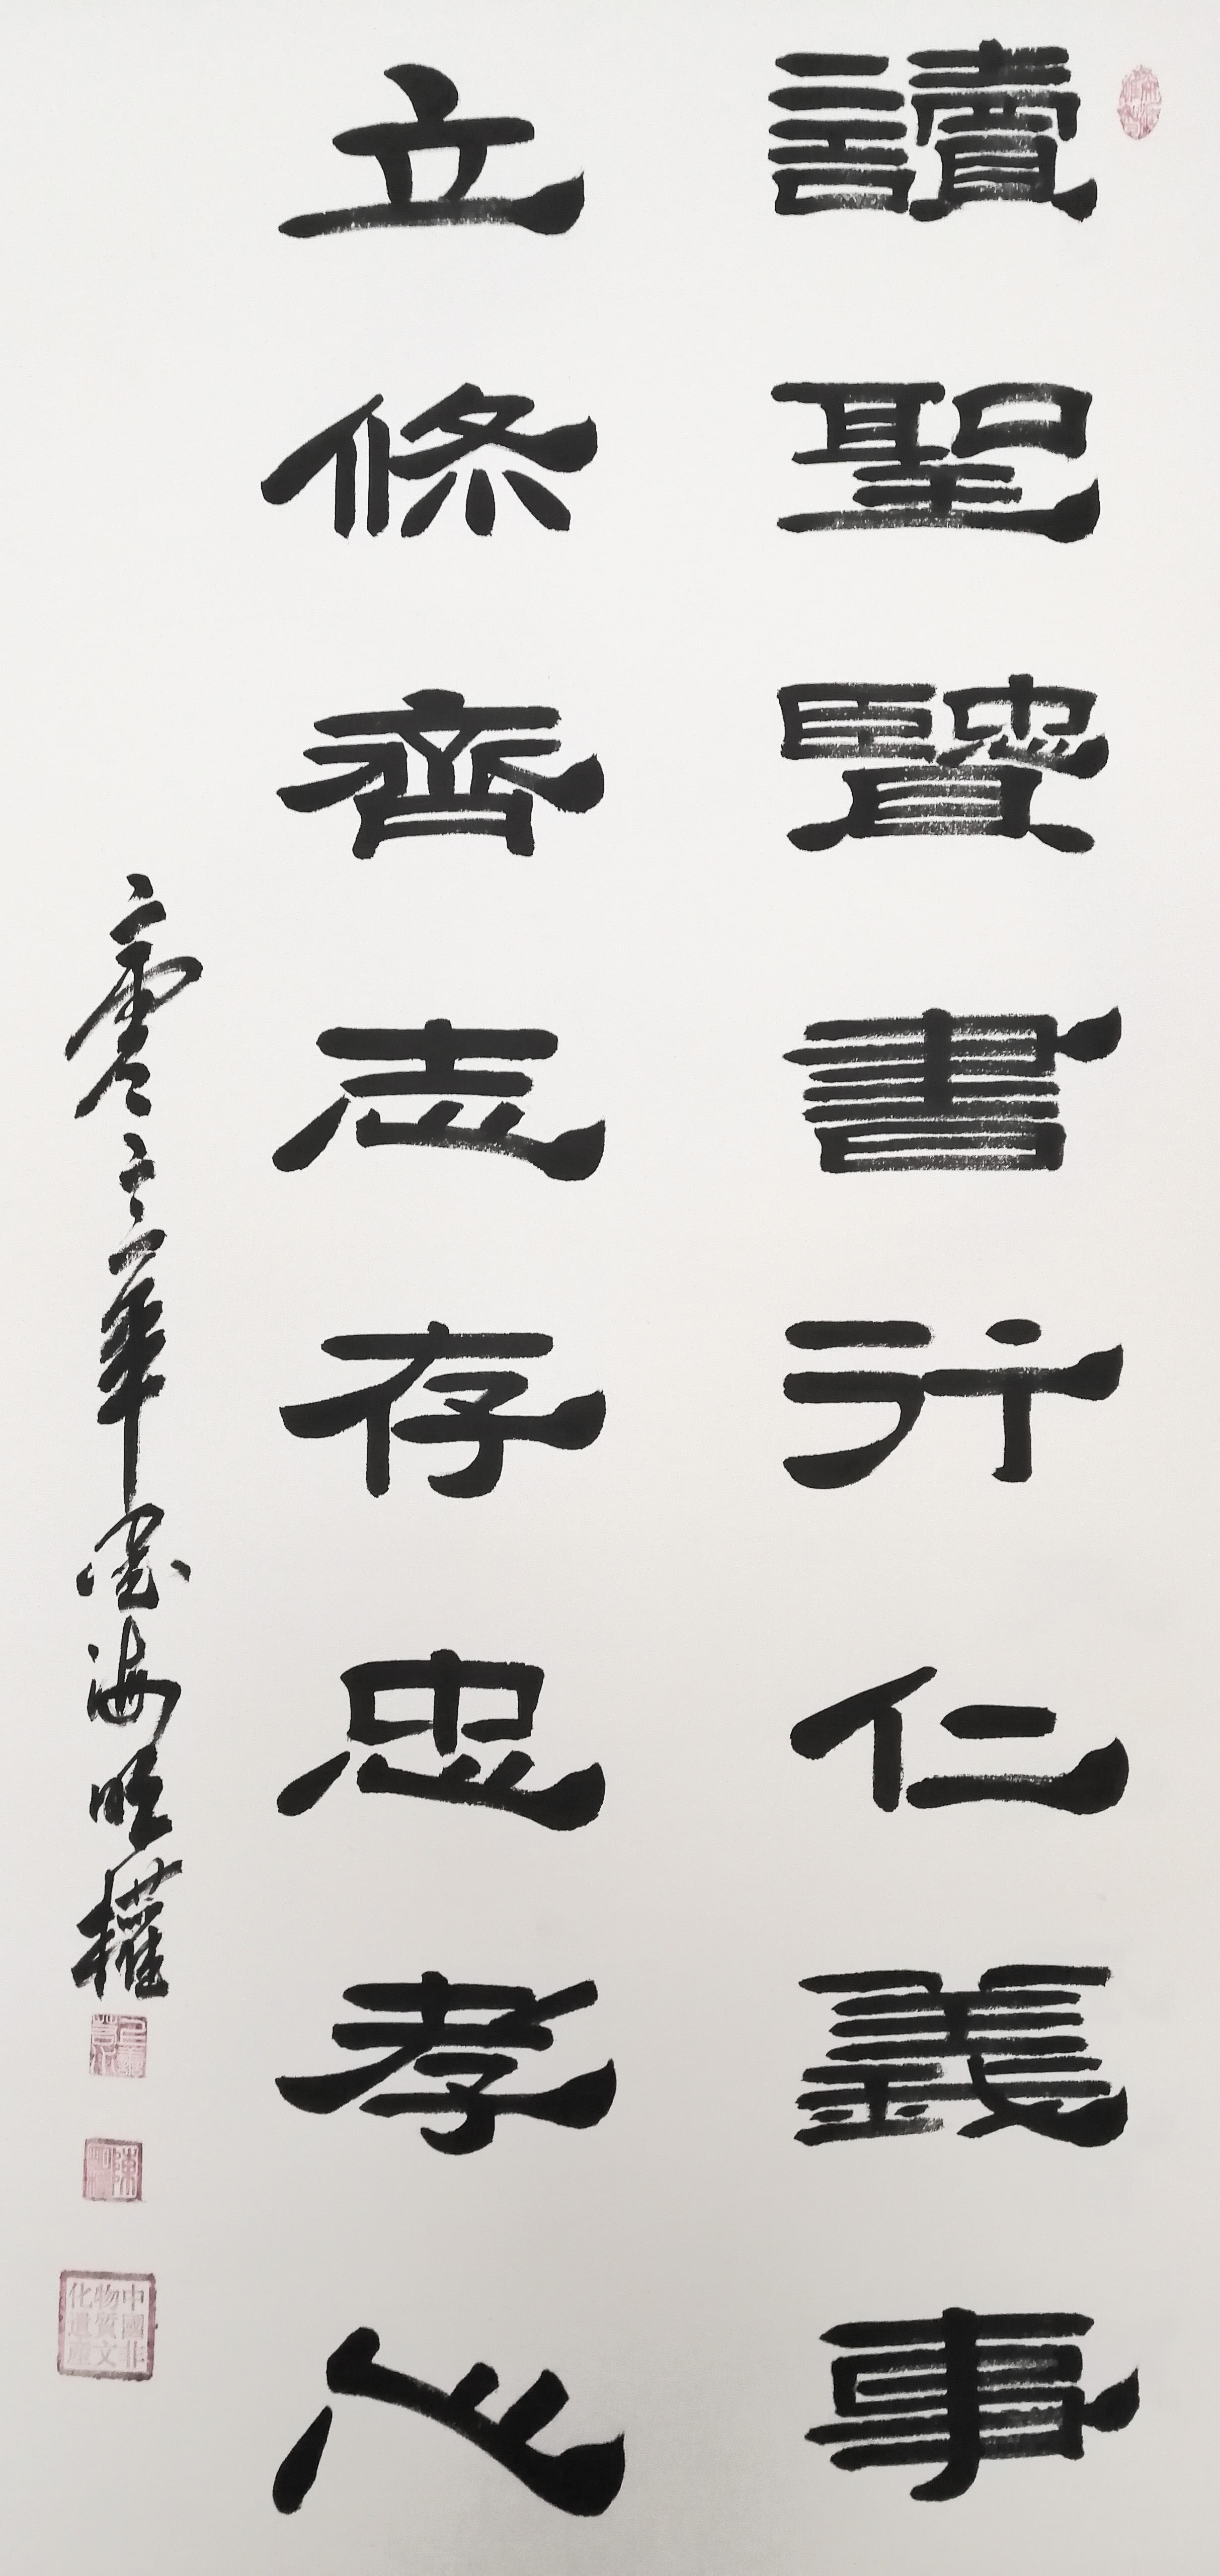 讀聖贒書行仁義事
立修齊志存忠孝心
年墨海旺權
中國非物質文化遺產